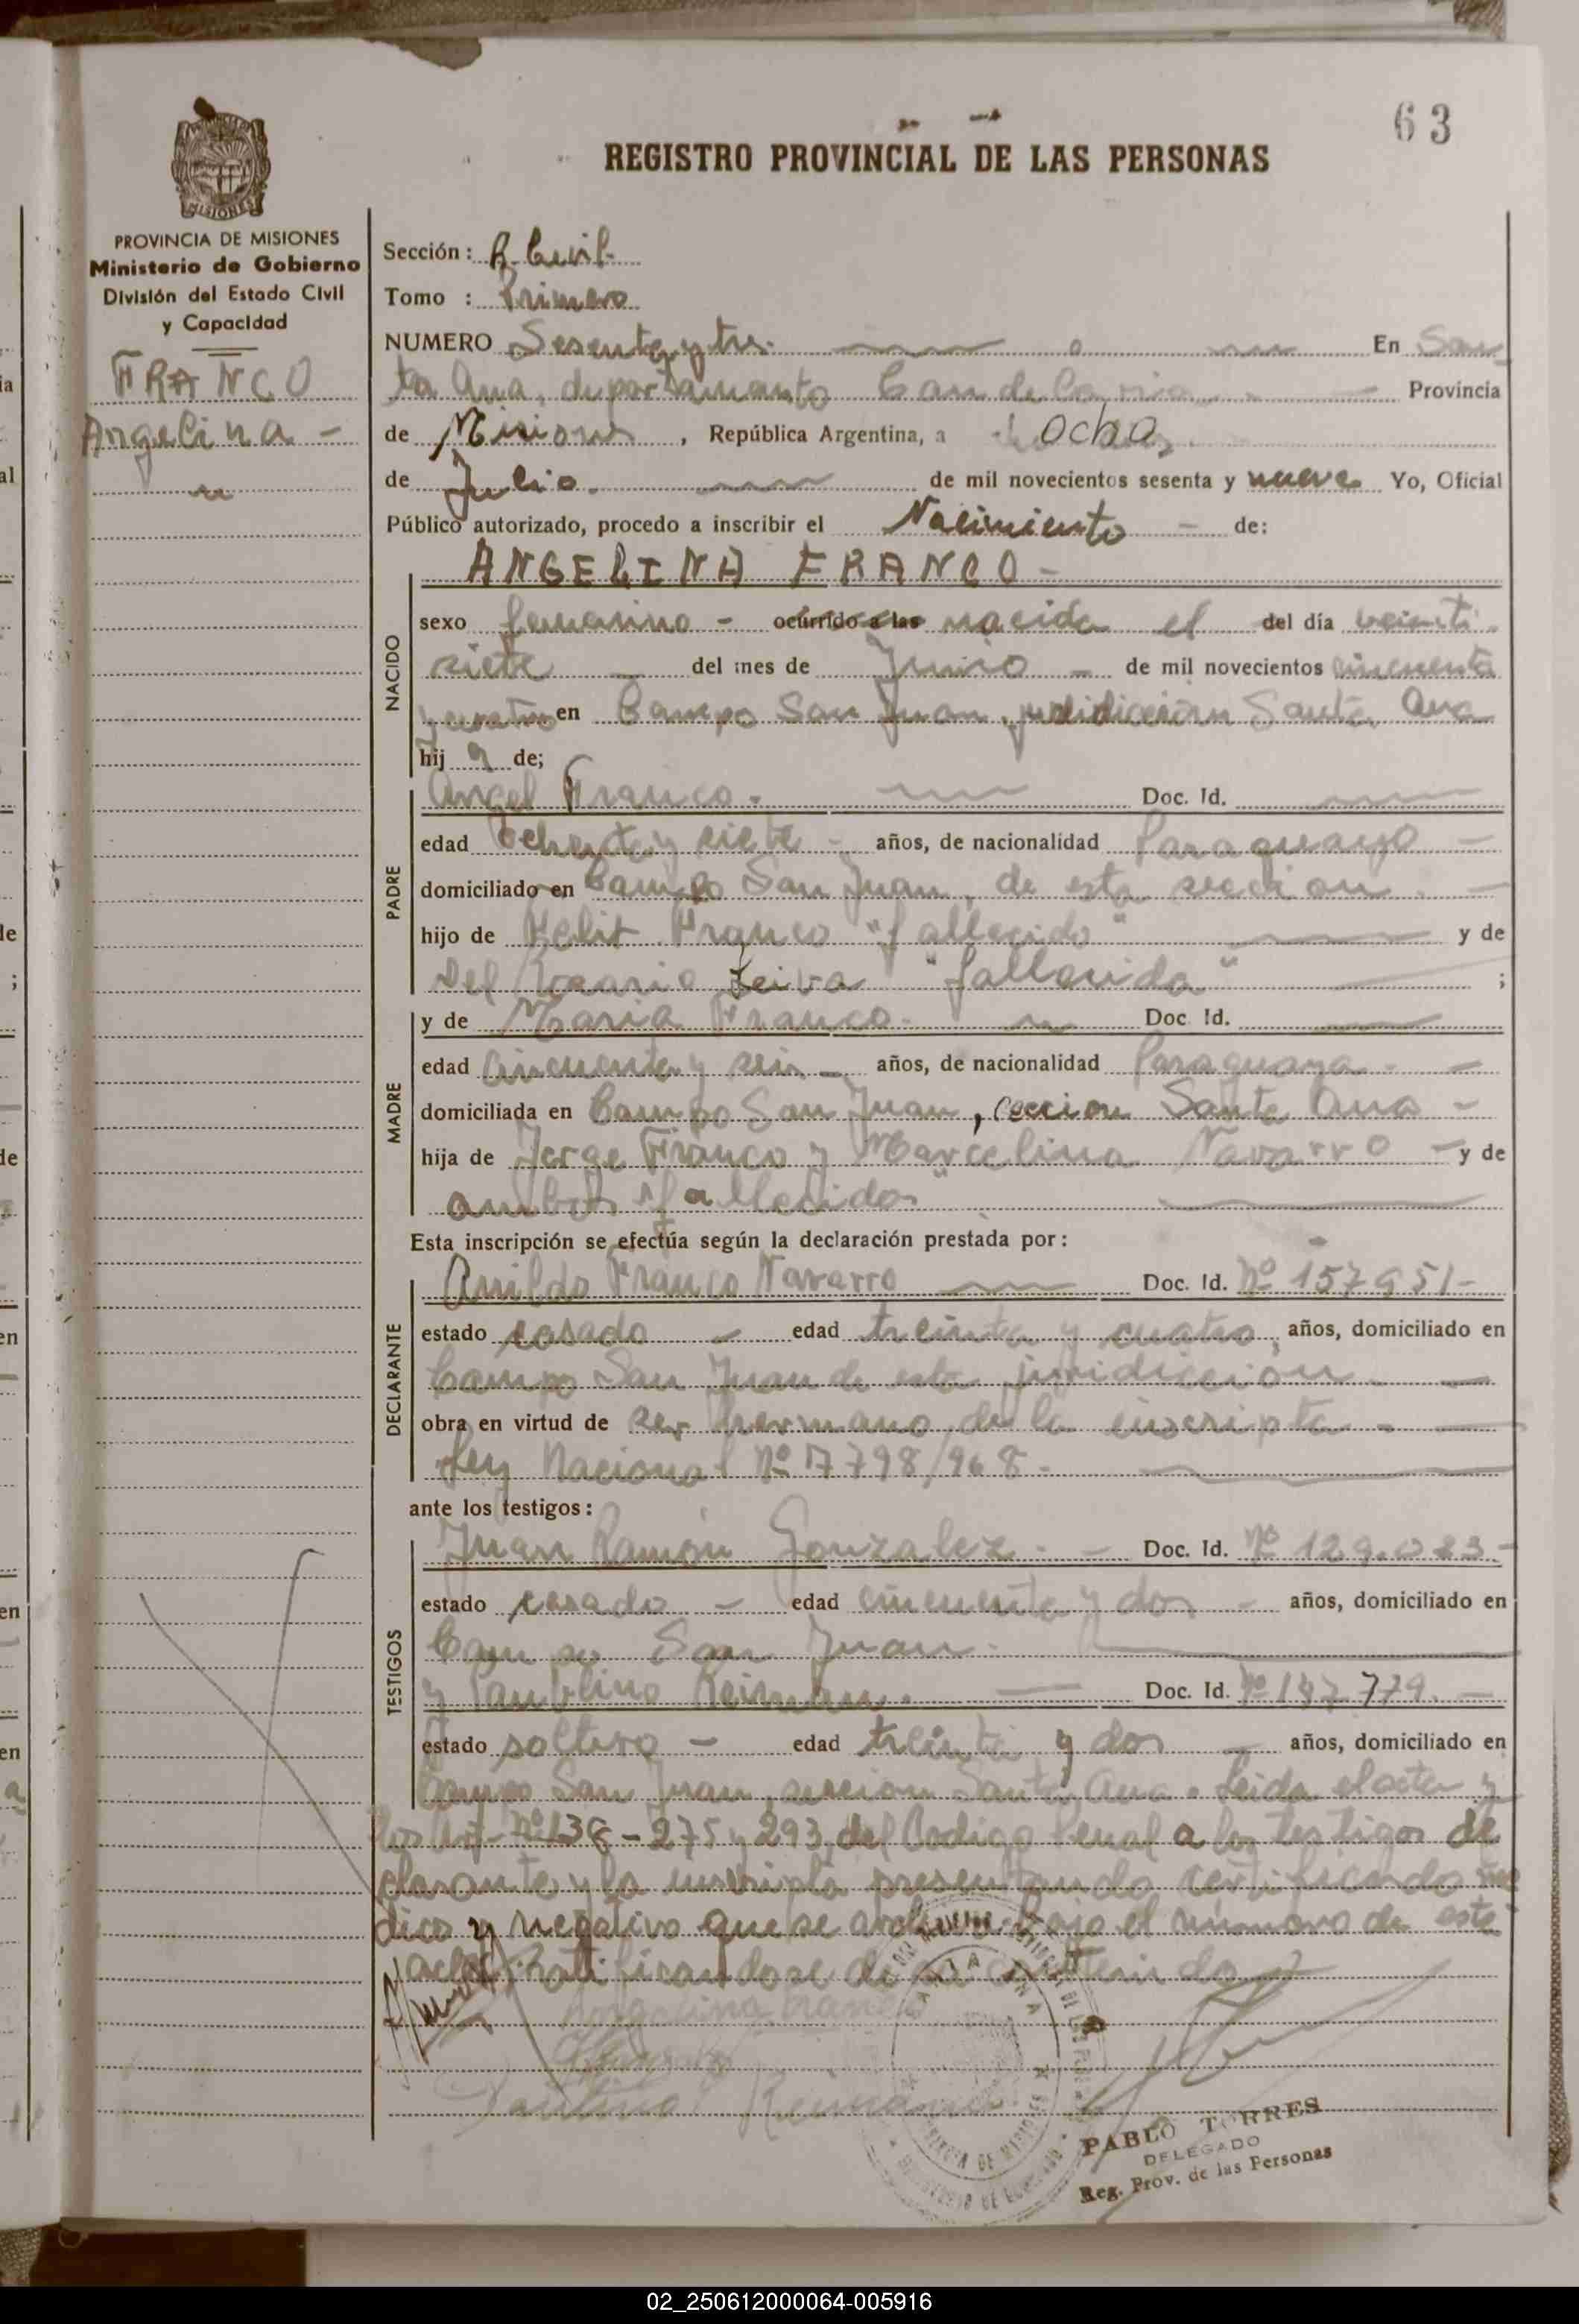 63
REGISTRO PROVINCIAL DE LAS PERSONAS
MISIONES
PROVINCIA DE MISIONES
Ministerio de Gobierno
División del Estado Civil
y Capacidad
FRANCO
Angelina -
Sección: R. Civil
Tomo : Primero
NUMERO Sesenta y tres. En San
ta Ana, departamento Candelaria Provincia
de Misiones, República Argentina, a ocho
de Julio. de mil novecientos sesenta y nueve Yo, Oficial
Público autorizado, procedo a inscribir el Nacimiento - de:
ANGELINA FRANCO -
NACIDO
sexo femenino - ocurrido a las nacida el del día veinti
siete del mes de Junio - de mil novecientos cincuenta
y cuatro en Campo San Juan, Santa Ana
hij a de;
PADRE
Angel Franco. Doc. Id.
edad Ochenta y siete - años, de nacionalidad Paraguayo -
domiciliado en Campo San Juan, de esta seccion. -
hijo de Franco "fallecido" y de
Del Rosario Leiva "fallecida" ;
MADRE
y de Maria Franco. Doc. Id.
edad Cincuenta y seis - años, de nacionalidad Paraguaya. -
domiciliada en Campo San Juan, seccion Santa Ana -
hija de Jorge Franco y Marcelina Navarro - y de
ambos "fallecidos"
Esta inscripción se efectúa según la declaración prestada por:
DECLARANTE
Franco Navarro Doc. Id. Nº 157951-
estado casado - edad treinta y cuatro, años, domiciliado en
Campo San Juan de esta juridiccion. -
obra en virtud de ser hermano de la inscripta. -
Ley Nacional Nº 17798/968.
ante los testigos:
TESTIGOS
Juan Ramón Gonzalez. - Doc. Id. Nº 129.023-
estado casado - edad cincuenta y dos - años, domiciliado en
Campo San Juan.
y Paublino Reimann. Doc. Id. Nº 147.779. -
estado soltero - edad treinta y dos - años, domiciliado en
Campo San Juan, seccion Santa Ana. Leida el acta y
los Nº 138-275 y 293, del Codigo Penal a los testigos de
clarante y la inscripta presentando certificado me
dico y negativo que se archiva bajo el número de esta
acta. Ratificandose de su contenido
Angelina Franco
SANTA ANA
PABLO TORRES
DELEGADO
Reg. Prov. de las Personas
02_250612000064-005916